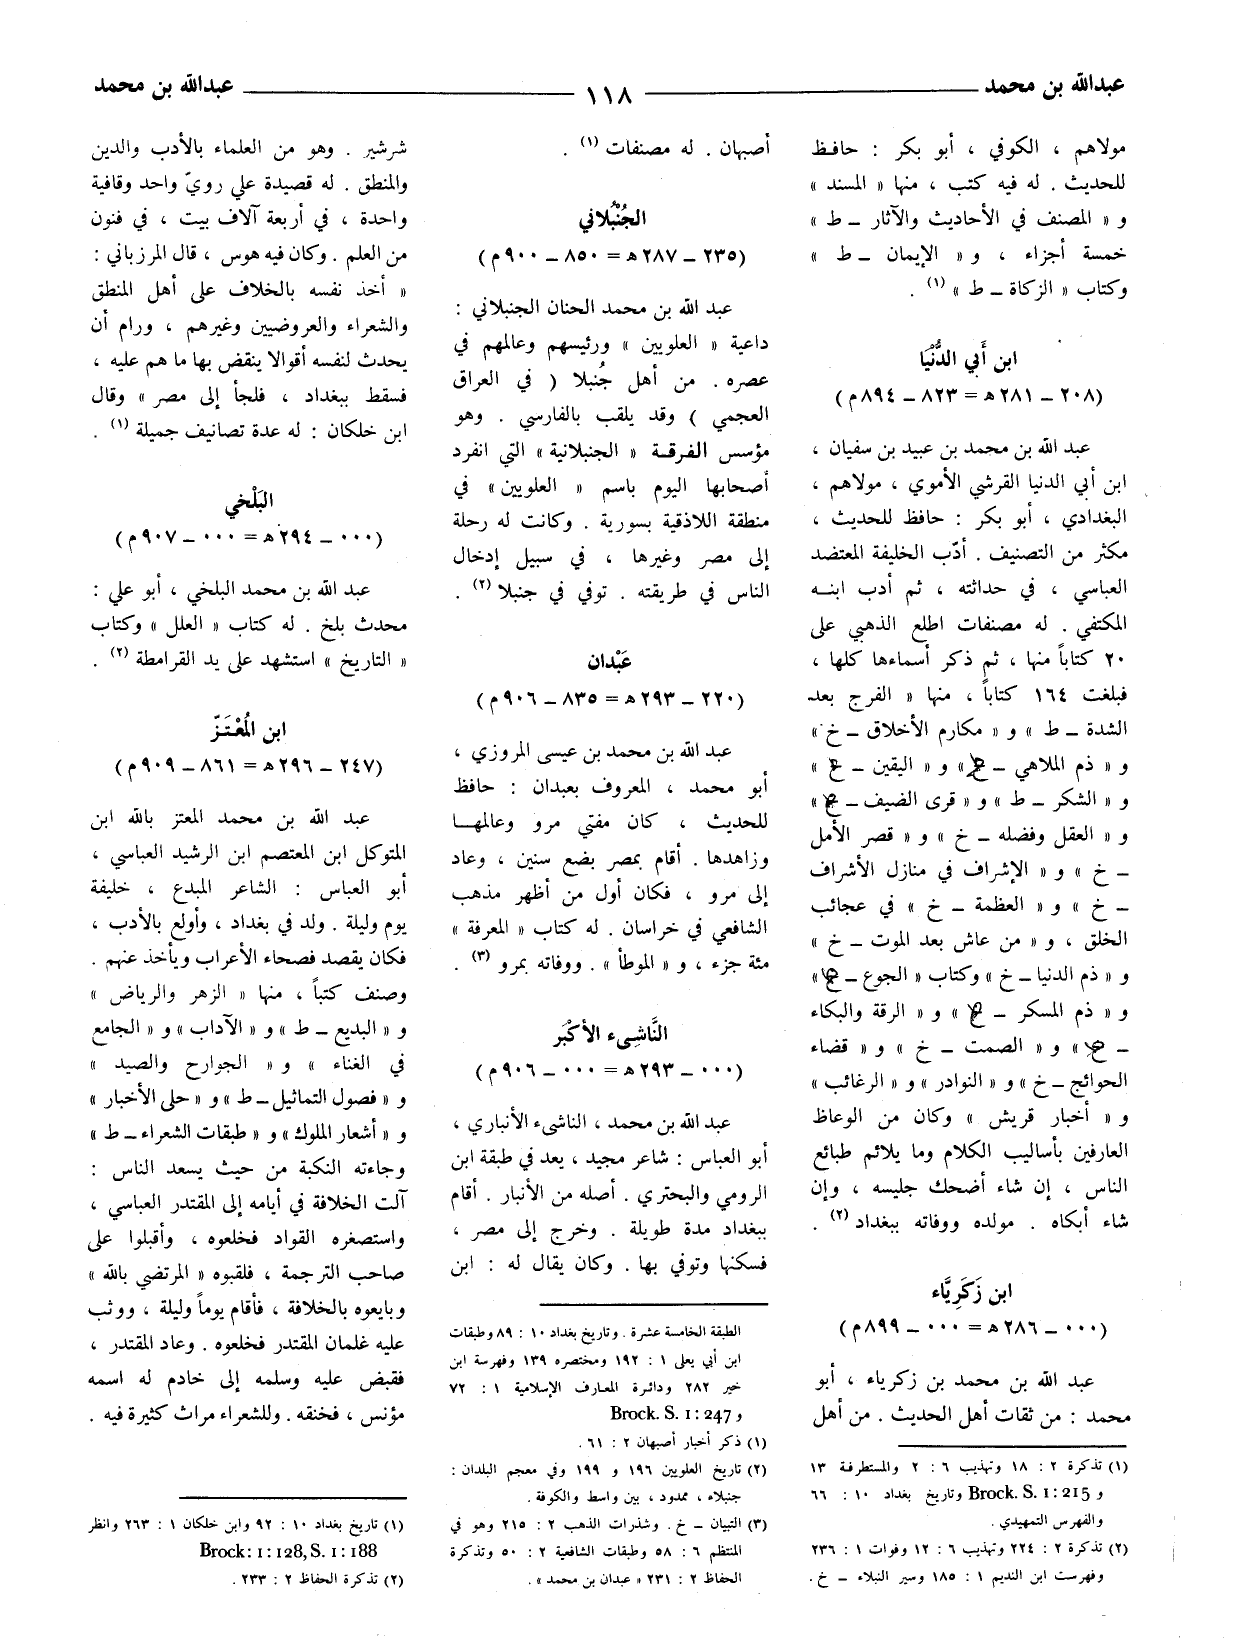 عبدالله بن محمد ١١٨ عبدالله بن محمد
مولاهم ، الكوفي ، أبو بكر : حافظ
للحديث . له فيه كتب ، منها « المسند »
و « المصنف في الأحاديث والآثار ـ ط »
خمسة أجزاء ، و « الإيمان ـ ط »
وكتاب « الزكاة ـ ط » (١) .
ابن أَبي الدُّنْيَا
(٢٠٨ ـ ٢٨١ هـ = ٨٢٣ ـ ٨٩٤ م)
عبد الله بن محمد بن عبيد بن سفيان ،
ابن أبي الدنيا القرشي الأموي ، مولاهم ،
البغدادي ، أبو بكر : حافظ للحديث ،
مكثر من التصنيف . أدّب الخليفة المعتضد
العباسي ، في حداثته ، ثم أدب ابنه
المكتفي . له مصنفات اطلع الذهبي على
٢٠ كتاباً منها ، ثم ذكر أسماءها كلها ،
فبلغت ١٦٤ كتاباً ، منها « الفرج بعد
الشدة ـ ط » و « مكارم الأخلاق ـ خ »
و « ذم الملاهي ـ » و « اليقين ـ »
و « الشكر ـ ط » و « قرى الضيف ـ »
و « العقل وفضله ـ خ » و « قصر الأمل
ـ خ » و « الإشراف في منازل الأشراف
ـ خ » و « العظمة ـ خ » في عجائب
الخلق ، و « من عاش بعد الموت ـ خ »
و « ذم الدنيا ـ خ » وكتاب « الجوع ـ »
و « ذم المسكر ـ » و « الرقة والبكاء
ـ » و « الصمت ـ خ » و « قضاء
الحوائج ـ خ » و « النوادر » و « الرغائب »
و « أخبار قريش » وكان من الوعاظ
العارفين بأساليب الكلام وما يلائم طبائع
الناس ، إن شاء أضحك جليسه ، وإن
شاء أبكاه . مولده ووفاته ببغداد (٢) .
ابن زَكَرِيَّاء
(٠٠٠ ـ ٢٨٦ هـ = ٠٠٠ ـ ٨٩٩ م)
عبد الله بن محمد بن زكرياء ، أبو
محمد : من ثقات أهل الحديث . من أهل
(١) تذكرة ٢ : ١٨ وتهذيب ٦ : ٢ والمستطرفة ١٣
و Brock. S. 1 : 215 وتاريخ بغداد ١٠ : ٦٦
والفهرس التمهيدي .
(٢) تذكرة ٢ : ٢٢٤ وتهذيب ٦ : ١٢ وفوات ١ : ٢٣٦
وفهرست ابن النديم ١ : ١٨٥ وسير النبلاء ـ خ .
أصبهان . له مصنفات (١) .
الجُنْبُلاني
(٢٣٥ ـ ٢٨٧ هـ = ٨٥٠ ـ ٩٠٠ م)
عبد الله بن محمد الحنان الجنبلاني :
داعية « العلويين » ورئيسهم وعالمهم في
عصره . من أهل جُنبلا ( في العراق
العجمي ) وقد يلقب بالفارسي . وهو
مؤسس الفرقة « الجنبلانية » التي انفرد
أصحابها اليوم باسم « العلويين » في
منطقة اللاذقية بسورية . وكانت له رحلة
إلى مصر وغيرها ، في سبيل إدخال
الناس في طريقته . توفي في جنبلا (٢) .
عَبْدان
(٢٢٠ ـ ٢٩٣ هـ = ٨٣٥ ـ ٩٠٦ م)
عبد الله بن محمد بن عيسى المروزي ،
أبو محمد ، المعروف بعبدان : حافظ
للحديث ، كان مفتي مرو وعالمها
وزاهدها . أقام بمصر بضع سنين ، وعاد
إلى مرو ، فكان أول من أظهر مذهب
الشافعي في خراسان . له كتاب « المعرفة »
مئة جزء ، و « الموطأ » . ووفاته بمرو (٣) .
النَّاشِىء الأكْبَر
(٠٠٠ ـ ٢٩٣ هـ = ٠٠٠ ـ ٩٠٦ م)
عبد الله بن محمد ، الناشىء الأنباري ،
أبو العباس : شاعر مجيد ، يعد في طبقة ابن
الرومي والبحتري . أصله من الأنبار . أقام
ببغداد مدة طويلة . وخرج إلى مصر ،
فسكنها وتوفي بها . وكان يقال له : ابن
الطبقة الخامسة عشرة . وتاريخ بغداد ١٠ : ٨٩ وطبقات
ابن أبي يعلى ١ : ١٩٢ ومختصره ١٣٩ وفهرسة ابن
خير ٢٨٢ ودائرة المعارف الإسلامية ١ : ٧٢
و Brock. S. 1 : 247
(١) ذكر أخبار أصبهان ٢ : ٦١ .
(٢) تاريخ العلويين ١٩٦ و ١٩٩ وفي معجم البلدان :
جنبلاء ، ممدود ، بين واسط والكوفة .
(٣) التبيان ـ خ . وشذرات الذهب ٢ : ٢١٥ وهو في
المنتظم ٦ : ٥٨ وطبقات الشافعية ٢ : ٥٠ وتذكرة
الحفاظ ٢ : ٢٣١ « عبدان بن محمد » .
شرشير . وهو من العلماء بالأدب والدين
والمنطق . له قصيدة على رويّ واحد وقافية
واحدة ، في أربعة آلاف بيت ، في فنون
من العلم . وكان فيه هوس ، قال المرزباني :
« أخذ نفسه بالخلاف على أهل المنطق
والشعراء والعروضيين وغيرهم ، ورام أن
يحدث لنفسه أقوالا ينقض بها ما هم عليه ،
فسقط ببغداد ، فلجأ إلى مصر » وقال
ابن خلكان : له عدة تصانيف جميلة (١) .
البَلْخي
(٠٠٠ ـ ٢٩٤ هـ = ٠٠٠ ـ ٩٠٧ م)
عبد الله بن محمد البلخي ، أبو علي :
محدث بلخ . له كتاب « العلل » وكتاب
« التاريخ » استشهد على يد القرامطة (٢) .
ابن المُعْتَزّ
(٢٤٧ ـ ٢٩٦ هـ = ٨٦١ ـ ٩٠٩ م)
عبد الله بن محمد المعتز بالله ابن
المتوكل ابن المعتصم ابن الرشيد العباسي ،
أبو العباس : الشاعر المبدع ، خليفة
يوم وليلة . ولد في بغداد ، وأولع بالأدب ،
فكان يقصد فصحاء الأعراب ويأخذ عنهم .
وصنف كتباً ، منها « الزهر والرياض »
و « البديع ـ ط » و « الآداب » و « الجامع
في الغناء » و « الجوارح والصيد »
و « فصول التماثيل ـ ط » و « حلى الأخبار »
و « أشعار الملوك » و « طبقات الشعراء ـ ط »
وجاءته النكبة من حيث يسعد الناس :
آلت الخلافة في أيامه إلى المقتدر العباسي ،
واستصغره القواد فخلعوه ، وأقبلوا على
صاحب الترجمة ، فلقبوه « المرتضي بالله »
وبايعوه بالخلافة ، فأقام يوماً وليلة ، ووثب
عليه غلمان المقتدر فخلعوه . وعاد المقتدر ،
فقبض عليه وسلمه إلى خادم له اسمه
مؤنس ، فخنقه . وللشعراء مراث كثيرة فيه .
(١) تاريخ بغداد ١٠ : ٩٢ وابن خلكان ١ : ٢٦٣ وانظر
Brock: 1 : 128, S. 1 : 188
(٢) تذكرة الحفاظ ٢ : ٢٣٣ .